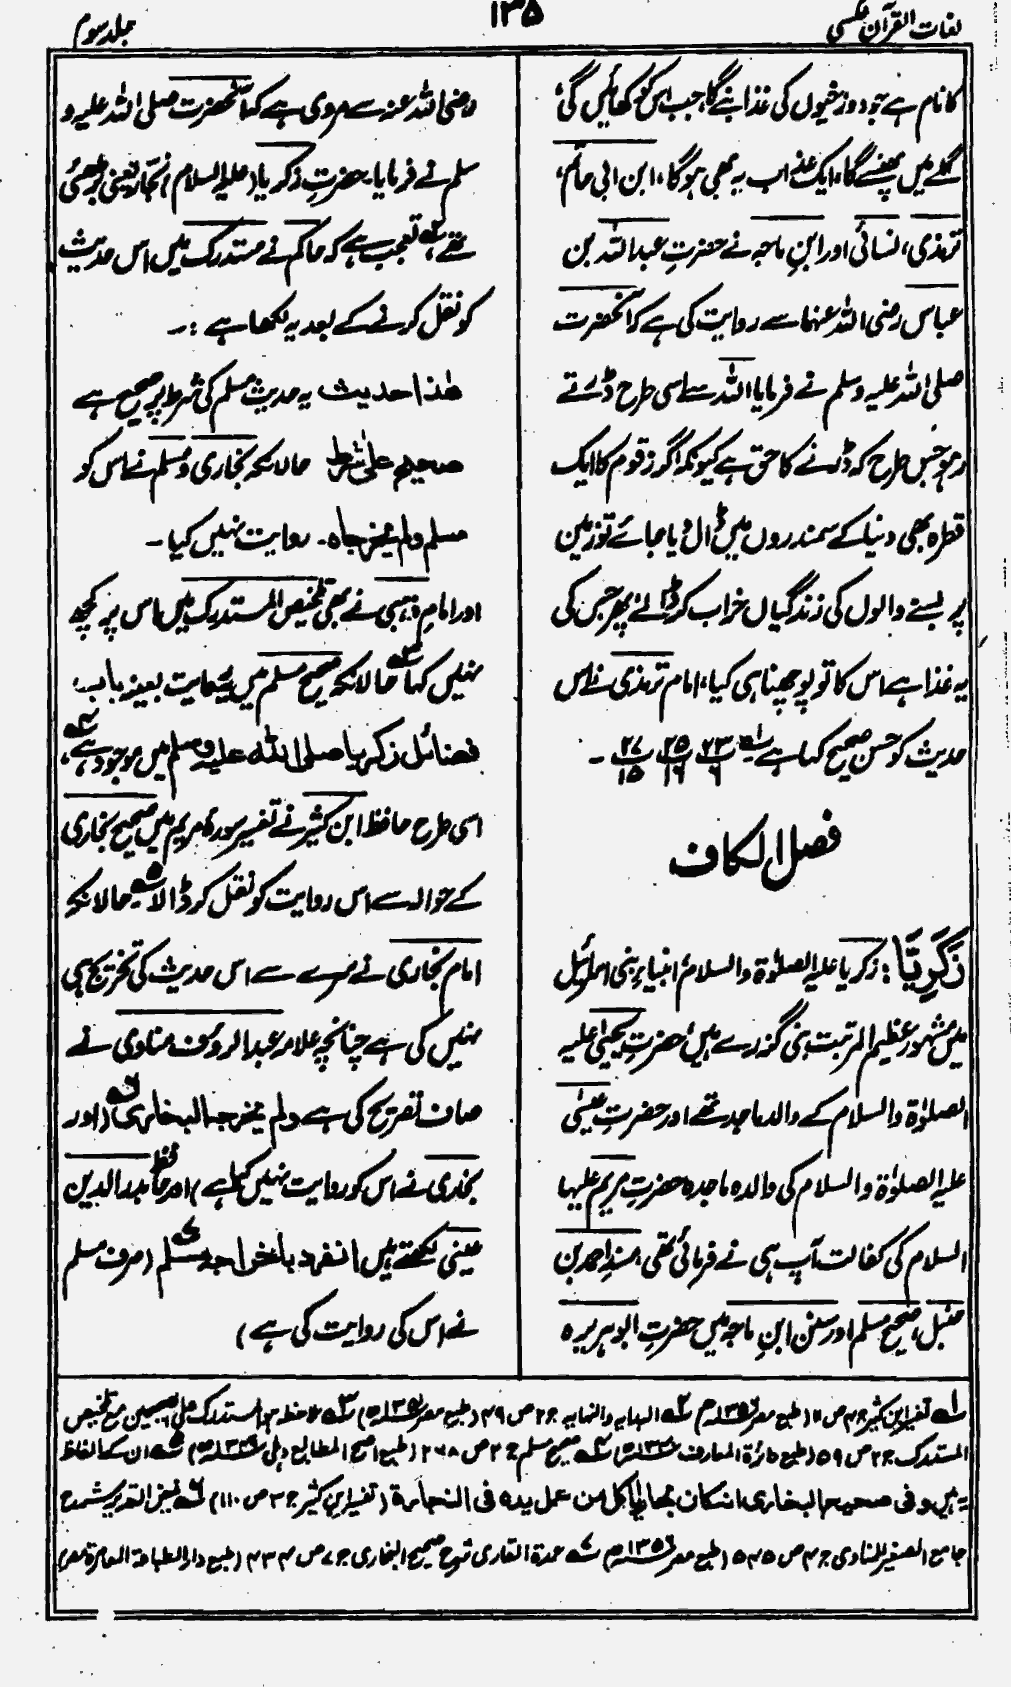 لغات القرآن عکسی
۱۳۵
جلد سوم
کا نام ہے جو دوزخیوں کی غذا بنے گا، جب اس کو کھائیں گے،
گلے میں پھنسے گا، ایک عذاب یہ بھی ہوگا، ابن ابی حاتم،
ترمذی، نسائی اور ابنِ ماجہ نے حضرتِ عبداللہ بن
عباس رضی اللہ عنہما سے روایت کی ہے کہ آنحضرت
صلی اللہ علیہ وسلم نے فرمایا اللہ سے اسی طرح ڈرتے
رہو جس طرح کہ ڈرنے کا حق ہے کیونکہ اگر زقوم کا ایک
قطرہ بھی دنیا کے سمندروں میں ڈال دیا جائے تو زمین
پر بسنے والوں کی زندگیاں خراب کر ڈالے، پھر جس کی
یہ غذا ہے اس کا تو پوچھنا ہی کیا، امام ترمذی نے اس
حدیث کو حسن صحیح کہا ہے۔ ۱ه ۲۳ پ ۶ ۲۵ پ ۱۶ ۲۷ پ ۱۵ ۔
فصل الکاف
زَکَرِیَّا : زکریا علیہ الصلوٰۃ والسلام انبیاءِ بنی اسرائیل
میں مشہور عظیم المرتبت نبی گزرے ہیں، حضرتِ یحییٰ علیہ
الصلوٰۃ والسلام کے والد ماجد تھے اور حضرتِ عیسیٰ
علیہ الصلوٰۃ والسلام کی والدہ ماجدہ حضرتِ مریم علیہا
السلام کی کفالت آپ ہی نے فرمائی تھی، مسندِ احمد بن
حنبل، صحیح مسلم اور سنن ابنِ ماجہ میں حضرتِ ابو ہریرہ
رضی اللہ عنہ سے مروی ہے کہ آنحضرت صلی اللہ علیہ و
سلم نے فرمایا۔ حضرتِ زکریا (علیہ السلام) نجّار یعنی بڑھئی
تھے ۲ه، تعجب ہے کہ حاکم نے مستدرک میں اس حدیث
کو نقل کرنے کے بعد یہ لکھا ہے :۔
ھٰذا حدیث یہ حدیث مسلم کی شرط پر صحیح ہے
صحیح علیٰ شرط حالانکہ بخاری و مسلم نے اس کو
مسلم ولم یخرجاہ۔ روایت نہیں کیا ۔
اور امامِ ذہبی نے بھی تلخیص المستدرک میں اس پر کچھ
نہیں کہا ۳ه حالانکہ صحیح مسلم میں یہ روایت بعینہ باب
فضائل زکریا صلی اللہ علیہ وسلم میں موجود ہے ۴ه،
اسی طرح حافظ ابن کثیر نے تفسیر سورۂ مریم میں صحیح بخاری
کے حوالہ سے اس روایت کو نقل کر ڈالا ۵ه حالانکہ
امام بخاری نے سرے سے اس حدیث کی تخریج ہی
نہیں کی ہے چنانچہ علامہ عبدالرؤف مناوی نے
صاف تصریح کی ہے ولم یخرجہ البخاری ۶ه (اور
بخاری نے اس کو روایت نہیں کیا ہے) اور حافظ بدر الدین
عینی لکھتے ہیں انفرد باخراجہ مسلم ۷ه (صرف مسلم
نے اس کی روایت کی ہے)
۱ه تفسیر ابن کثیر ج ۴ ص ۱۱ (طبع مصر ۱۳۵۶ھ) ۲ه البدایہ والنہایہ ج ۲ ص ۴۹ (طبع مصر ۱۳۵۱ھ) ۳ه ملاحظہ ہو المستدرک علی الصحیحین مع تلخیص
المستدرک ج ۲ ص ۵۹۰ (طبع دائرۃ المعارف) ۴ه صحیح مسلم ج ۲ ص ۲۶۸ (طبع اصح المطابع دہلی) ۵ه ان کے الفاظ
یہ ہیں وفی صحیح البخاری انہ کان نجارا یاکل من عمل یدہ فی النجارۃ (تفسیر ابن کثیر ج ۳ ص ۱۱۰) ۶ه فیض القدیر شرح
جامع الصغیر للمناوی ج ۴ ص ۵۴۵ (طبع مصر ۱۳۵۶ھ) ۷ه عمدۃ القاری شرح صحیح البخاری ج ۷ ص ۴۳۴ (طبع دار الطباعۃ العامرۃ مصر)